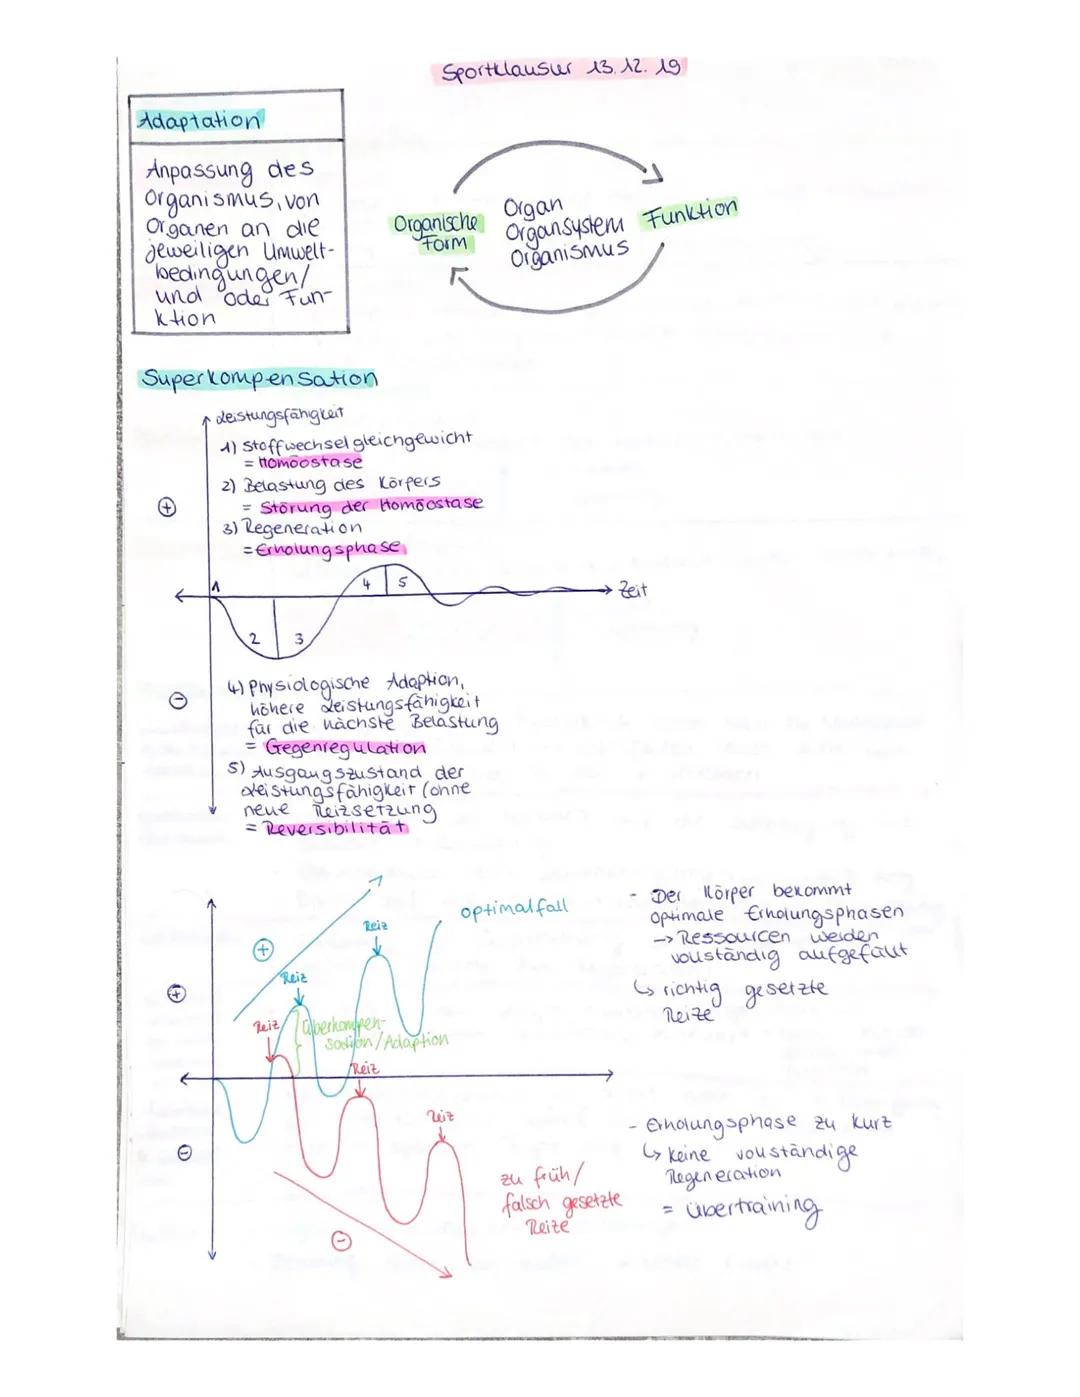 Sportklausur 13.12.19
Adaptation
Anpassung des
Organismus, von
Organen an die
jeweiligen Umwelt-
bedingungen/
und oder Fun-
ktion
Organische
Form
Organ
Organsystem
Organismus
Funktion
Superkompensation
Leistungsfähigkeit
1) Stoffwechselgleichgewicht
= Homöostase
2) Belastung des Körpers
= Störung der Homöostase
3) Regeneration
= Erholungsphase
+
1
2
3
4
5
Zeit
-
4) Physiologische Adaption,
höhere Leistungsfähigkeit
für die nächste Belastung
= Gegenregulation
5) Ausgangszustand der
Leistungsfähigkeit (ohne
neue Reizsetzung
= Reversibilität
optimalfall
Reiz
+
Reiz
+
Reiz
Überkompen-
sation/Adaption
Reiz
Reiz
-
zu früh/
falsch gesetzte
Reize
-
- Der Körper bekommt
optimale Erholungsphasen
→ Ressourcen werden
vollständig aufgefüllt
↳ richtig gesetzte
Reize
- Erholungsphase zu kurz
↳ keine vollständige
Regeneration
= Übertraining